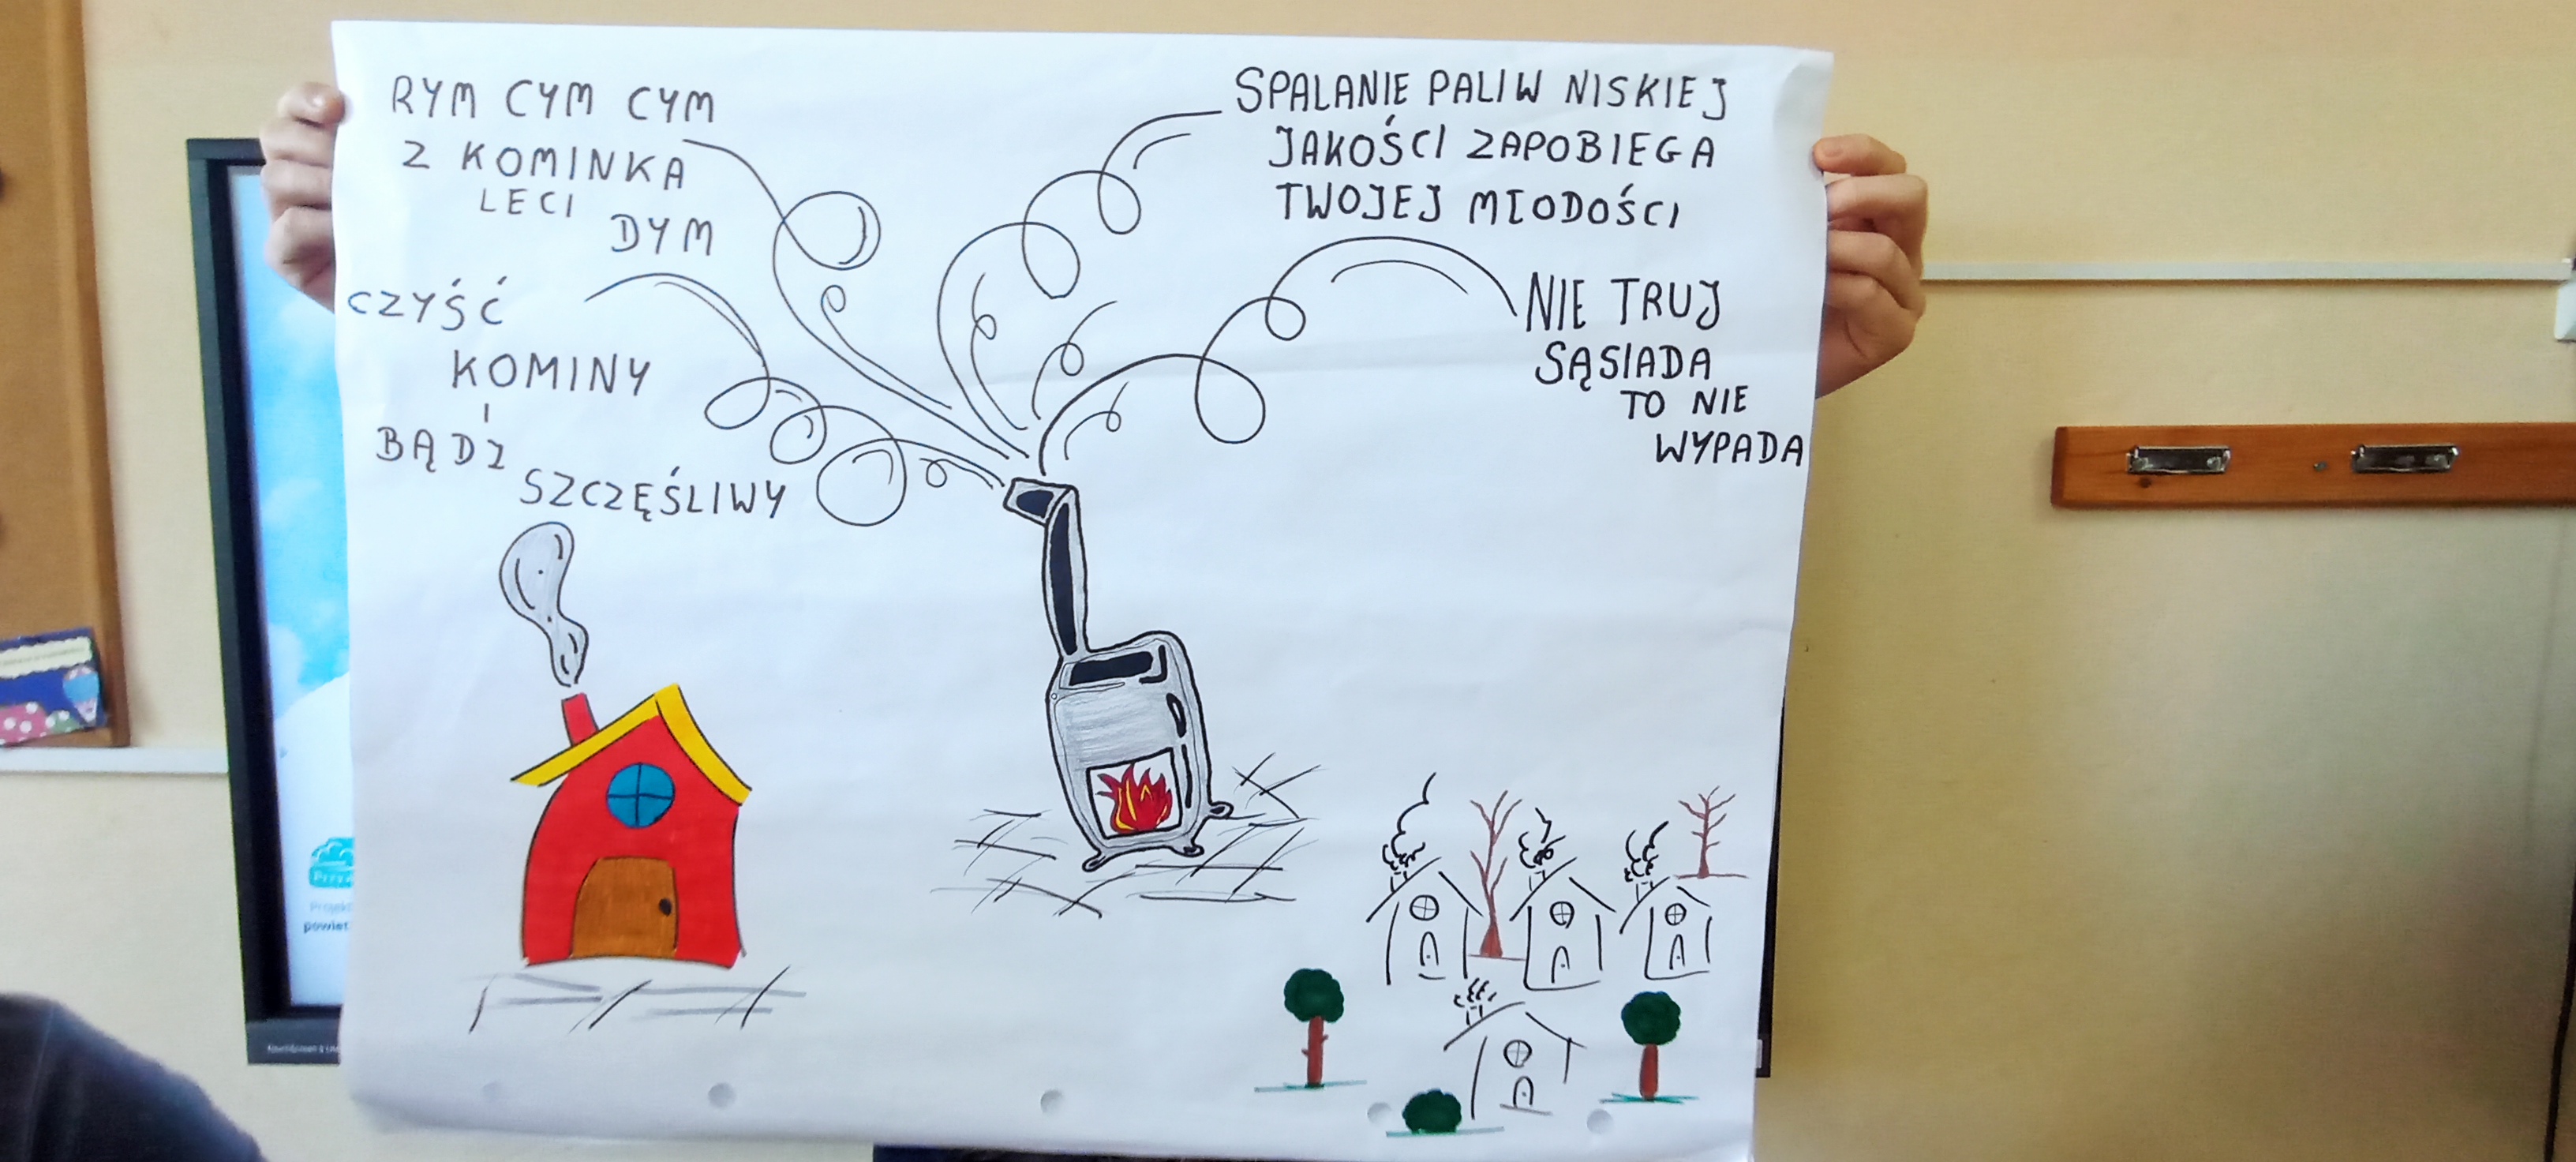 RYM CYM CYM
Z KOMINKA
LECI
DYM
CZYŚĆ
KOMINY
I
BĄDŹ
SZCZĘŚLIWY
SPALANIE PALIW NISKIEJ
JAKOŚCI ZAPOBIEGA
TWOJEJ MŁODOŚCI
NIE TRUJ
SĄSIADA
TO NIE
WYPADA
Projekt
powiet